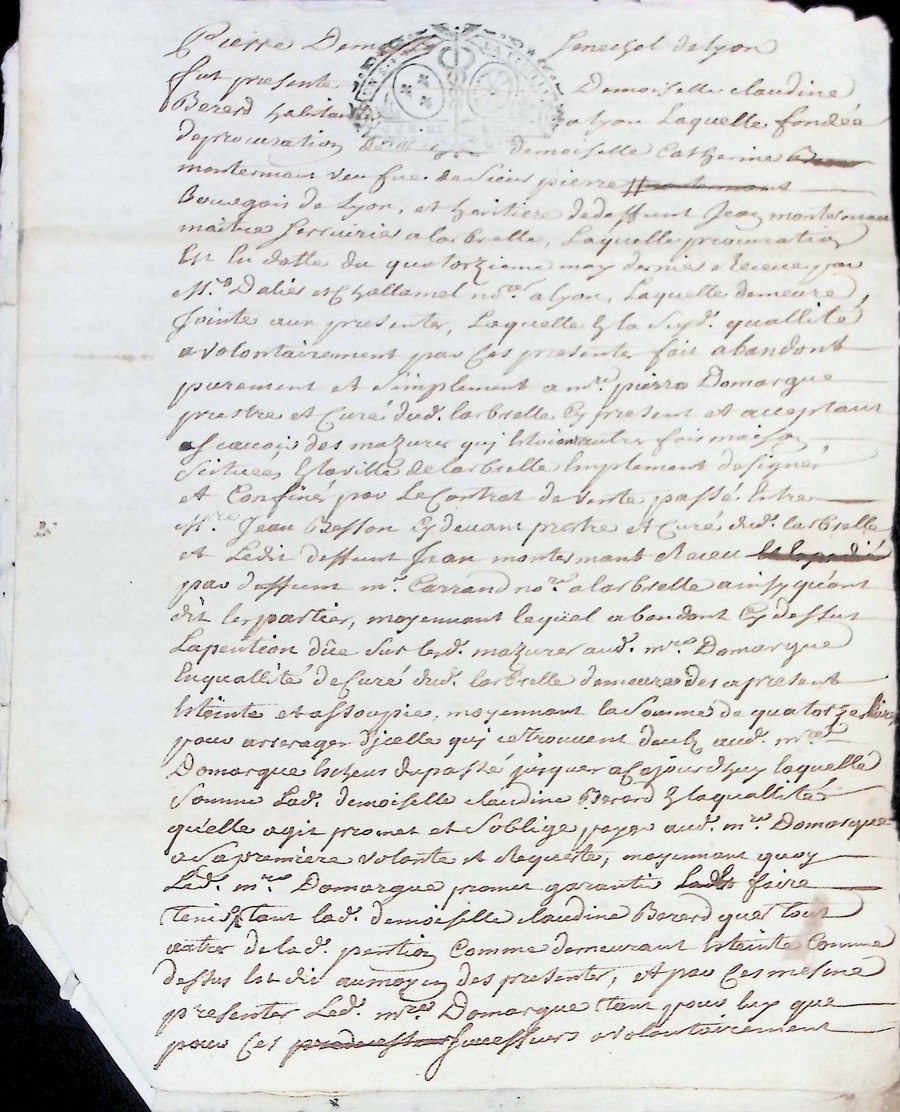 Pierre Dem Senechal de Lyon
fut presente Demoiselle Claudine
Berard habitan a Lyon Laquelle fondée
de procuration de demoiselle Catherine
montermant veufue de Sieur pierre
Bourgois de Lyon, et heritiere de deffunt Jean montermant
maitre Serrurier a larbrelle, Laquelle procuration
Est En datte du quatorzieme may dernier Receue par
Mes Dalier et Challamel nores a Lyon, Laquelle demeure
Jointe aux presenter, Laquelle En la Sусd. quallité
a volontairement par Ces presenter fait abandont
purement et Simplement a mre pierre Domargue
prestre et Curé dud. larbrelle Cy present et acceptant
Scavoir des mazurer qui Estoient autre fois maison
Scituée En la ville de larbrelle Emplement designér
et Confiné par Le Contrat de vente passé Entre
Mre Jean Besson Cy devant prestre et Curé dud. larbrelle
et Ledit deffunt Jean montermant Receu
par deffunt mr. Carrand nore a larbrelle ainsy quont
dit les partier, moyennant lequel abandont Cy dessus
La pention düe Sur lesd. mazurer aud. mre Domargue
En quallité de Curé dud. larbrelle demeurera des a present
Esteinte et assoupie, moyennant la Somme de quatorze livres
pour arrerager d'jcelle qui ce trouvent deub aud. mre
Domargue du passé jusquer a Cejourdhuy laquelle
Somme Lad. demoiselle Claudine Berard En la quallité
qu'elle agit promet et Soblige payer aud. mre Domargue
a Sa première volonté et Requeste, moyennant quoy
Led. mre Domargue promet garantir faire
tenir tant lad. demoiselle Claudine Berard que tout
autre de lad. pention Comme demeurant Esteinte Comme
dessus Est dit au moyen des presenter, et par Ces mesme
presenter Led. mre Domargue tant pour luy que
pour Ces Successeurs a volontairement